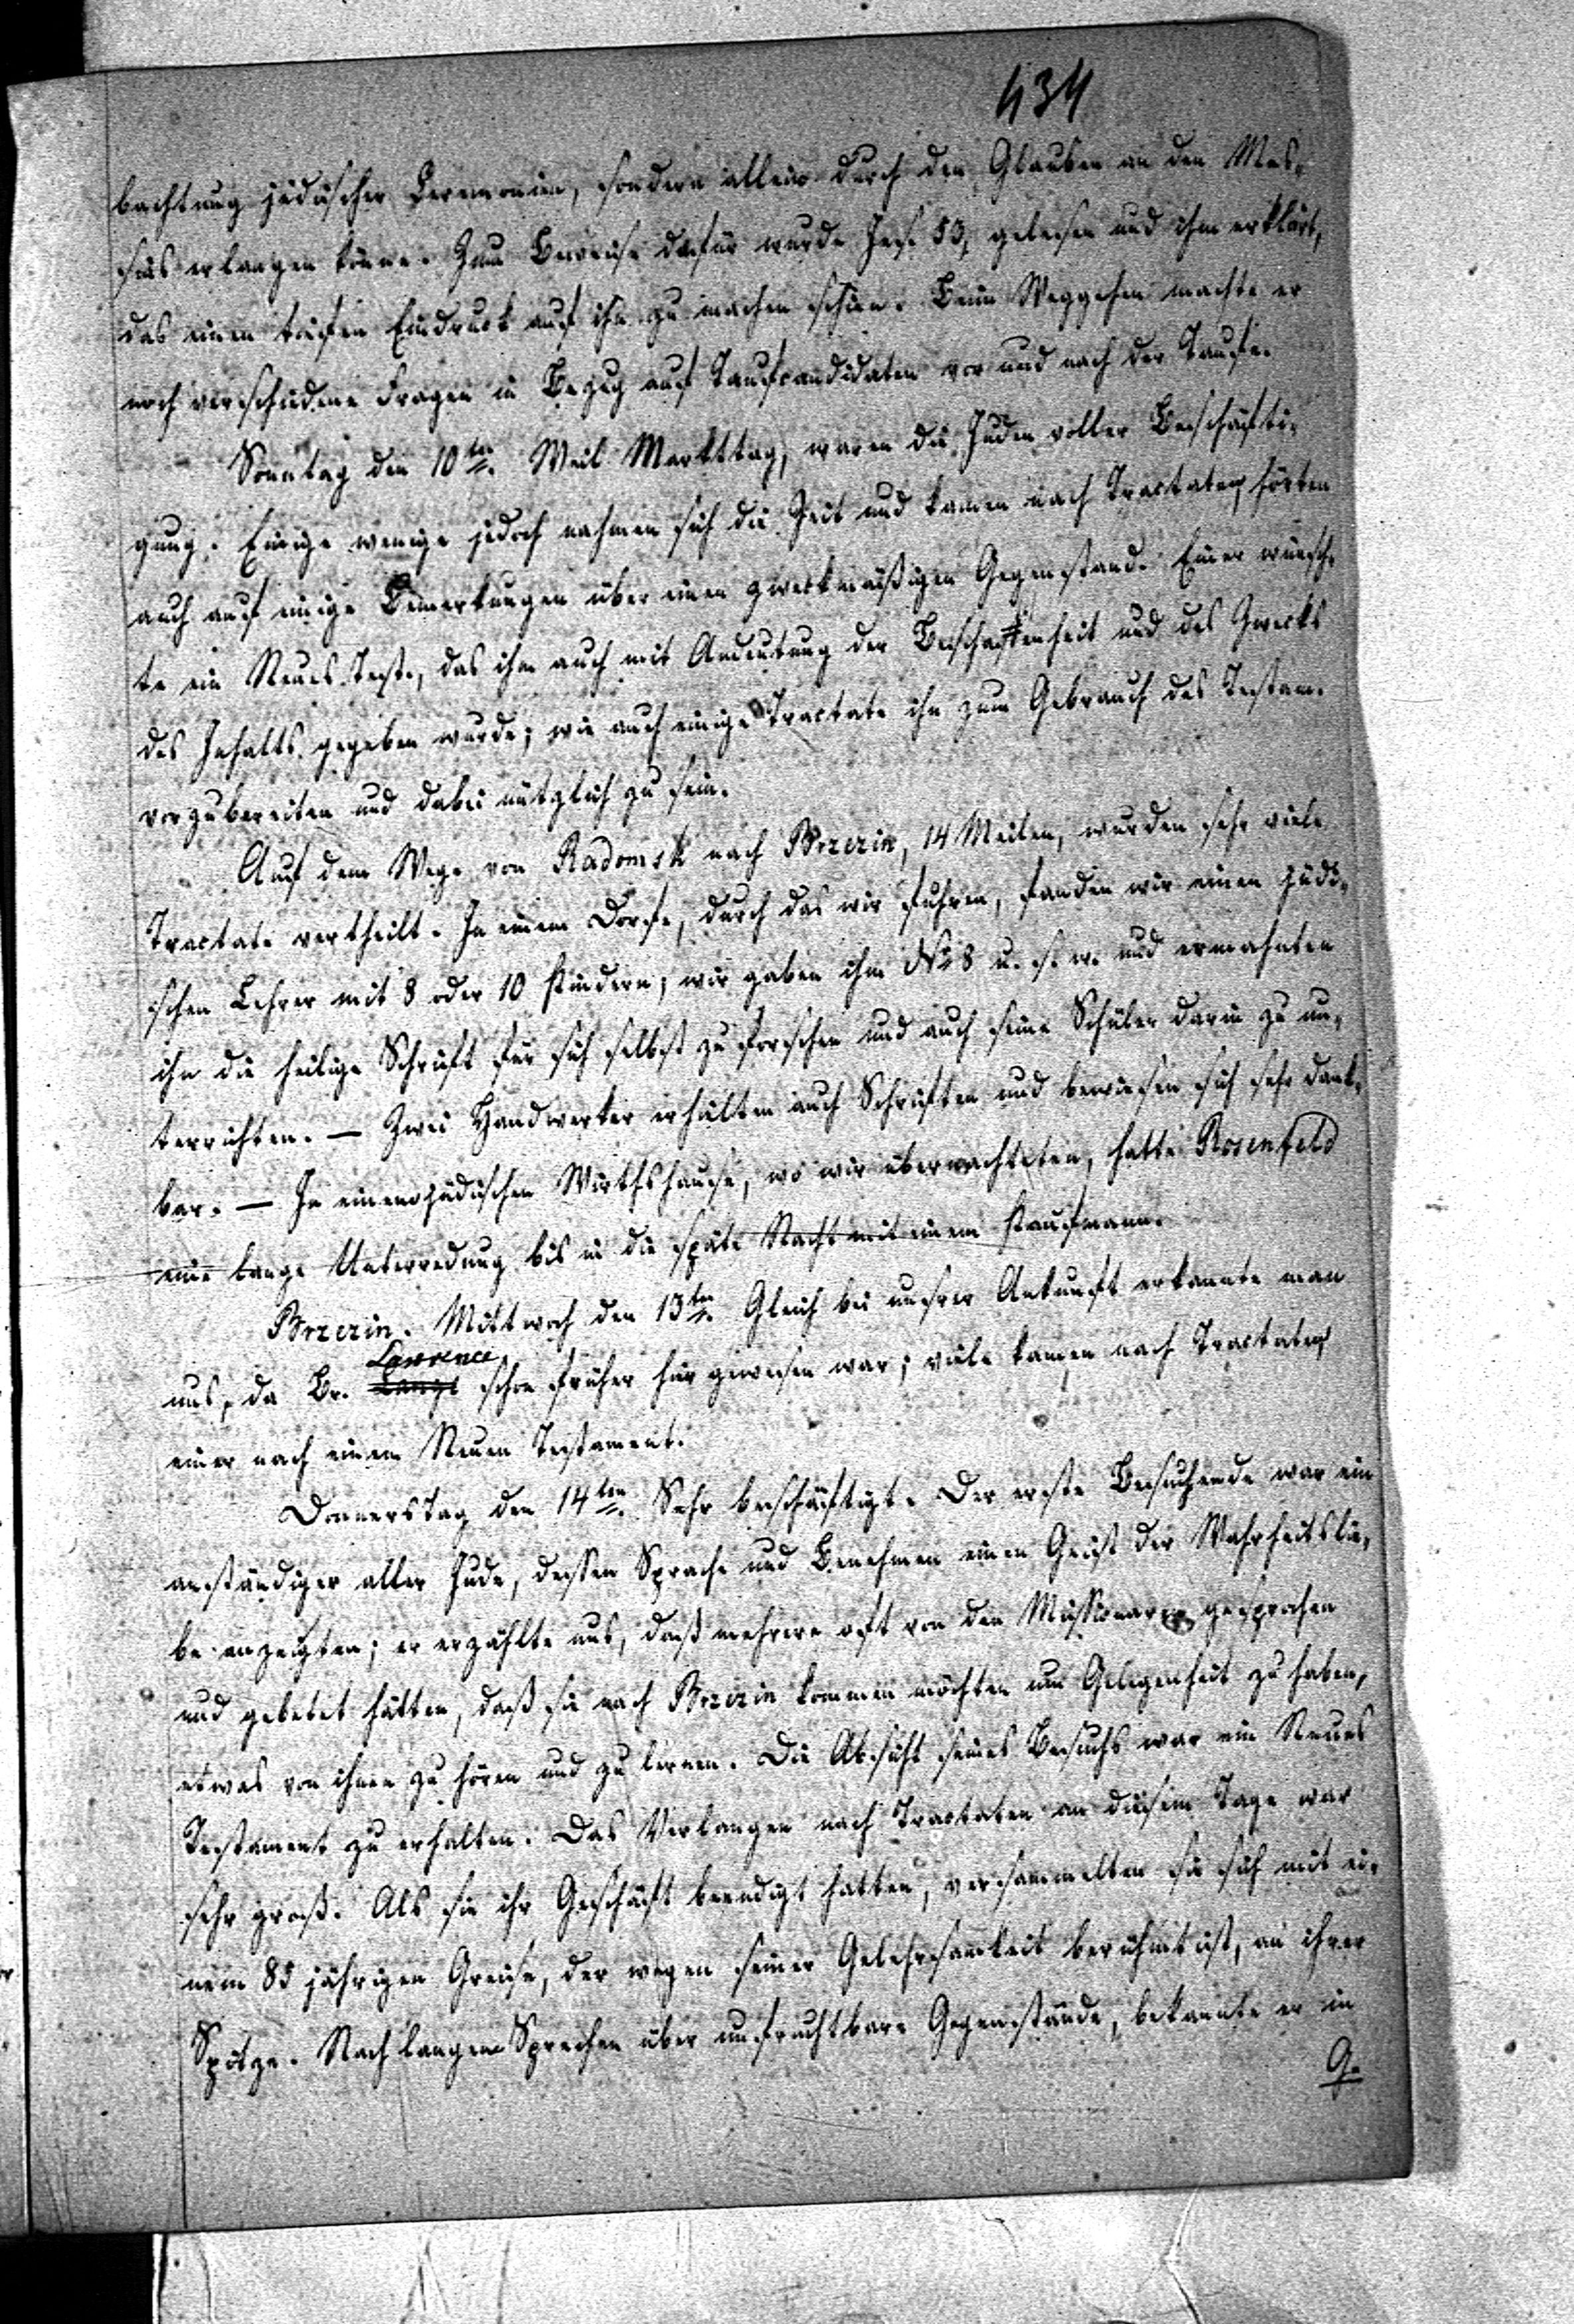 434
bachtung jüdischer Ceremonien, sondern allein durch den Glauben an den Mes-
sias erlangen könne. Zum Beweise dafür wurde Jes. 53, gelesen und ihm erklärt,
das einen tiefen Eindruck auf ihn zu machen schien. Beim Weggehen machte er
noch verschiedene Fragen in Bezug auf Taufcandidaten vor und nach der Taufe.
Sonntag den 10ten. Weil Markttag, waren die Juden voller Beschäfti-
gung. Einige wenige jedoch nahmen sich die Zeit und kamen nach Tractaten, hörten
auch auf einige Bemerkungen über einen zweckmäßigen Gegenstand. Einer wünsch-
te ein Neues Test., das ihm auch mit Andeutung der Beschaffenheit und des Zwecks
des Inhalts gegeben wurde; wie auch einige Tractate ihn zum Gebrauch des Testam.
vorzubereiten und dabei nützlich zu sein.
Auf dem Wege von Radomsk nach Brzezin, 14 Meilen, wurden sehr viele
Tractate vertheilt. In einem Dorfe, durch das wir fuhren, fanden wir einen jüdi-
schen Lehrer mit 8 oder 10 Kindern; wir gaben ihm No 8 u. s. w. und ermahnten
ihn die heilige Schrift für sich selbst zu forschen und auch seine Schüler darin zu un-
terrichten. — Zwei Handwerker erhielten auch Schriften und bewiesen sich sehr dank-
bar. — In einem jüdischen Wirthshause, wo wir übernachteten, hatte Rosenfeld
eine lange Unterredung bis in die späte Nacht mit einem Kaufmann.
Brzezin. Mittwoch den 13ten. Gleich bei unsrer Ankunft erkannte man
Lawrence
uns, da Br. Lange schon früher hier gewesen war; viele kamen nach Tractaten,
einer nach einem Neuen Testament.
Donnerstag den 14ten. Sehr beschäftigt. Der erste Besuchende war ein
anständiger alter Jude, dessen Sprache und Benehmen einen Geist der Wahrheitslie-
be anzeigten; er erzählte uns, daß mehrere oft von den Missionaren gesprochen
und gebetet hätten, daß sie nach Brzezin kommen möchten um Gelegenheit zu haben,
etwas von ihnen zu hören und zu lernen. Die Absicht seines Besuchs war ein Neues
Testament zu erhalten. Das Verlangen nach Tractaten an diesem Tage war
sehr groß. Als sie ihr Geschäft beendigt hatten, versammelten sie sich mit ei-
nem 85 jährigen Greise, der wegen seiner Gelehrsamkeit berühmt ist, an ihrer
Spitze. Nach langem Sprechen über unfruchtbare Gegenstände, bekannte er in
9.